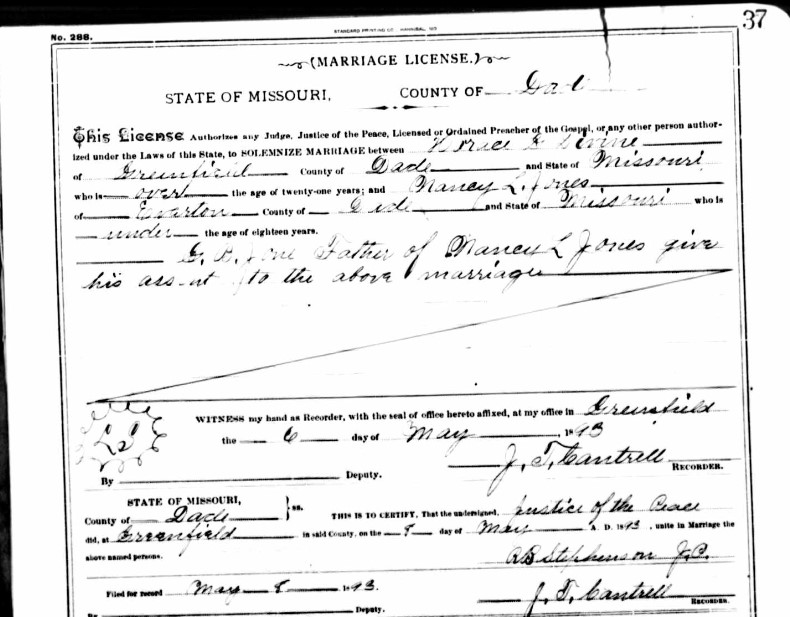 37
No. 288.
STANDARD PRINTING CO. HANNIBAL, MO
(MARRIAGE LICENSE.)
STATE OF MISSOURI, COUNTY OF Dad
This License Authorizes any Judge, Justice of the Peace, Licensed or Ordained Preacher of the Gospel, or any other person author-
ized under the Laws of this State, to SOLEMNIZE MARRIAGE between Horace
of Greenfield County of Dade and State of Missouri
who is over the age of twenty-one years; and Nancy L. Jones
of Everton County of Dade and State of Missouri who is
under the age of eighteen years.
G. B. Jone Father of Nancy L Jones give
his assent to the above marriage
WITNESS my hand as Recorder, with the seal of office hereto affixed, at my office in Greenfield
the 6 day of May, 1893
LS
J. T. Cantrell RECORDER.
By Deputy.
STATE OF MISSOURI, } ss.
County of Dade THIS IS TO CERTIFY, That the undersigned, Justice of the Peace
did, at Greenfield in said County, on the 8 day of May A. D. 1893, unite in Marriage the
above named persons. R B Stephenson J.P.
Filed for record May 8 1893. J. T. Cantrell RECORDER.
By Deputy.